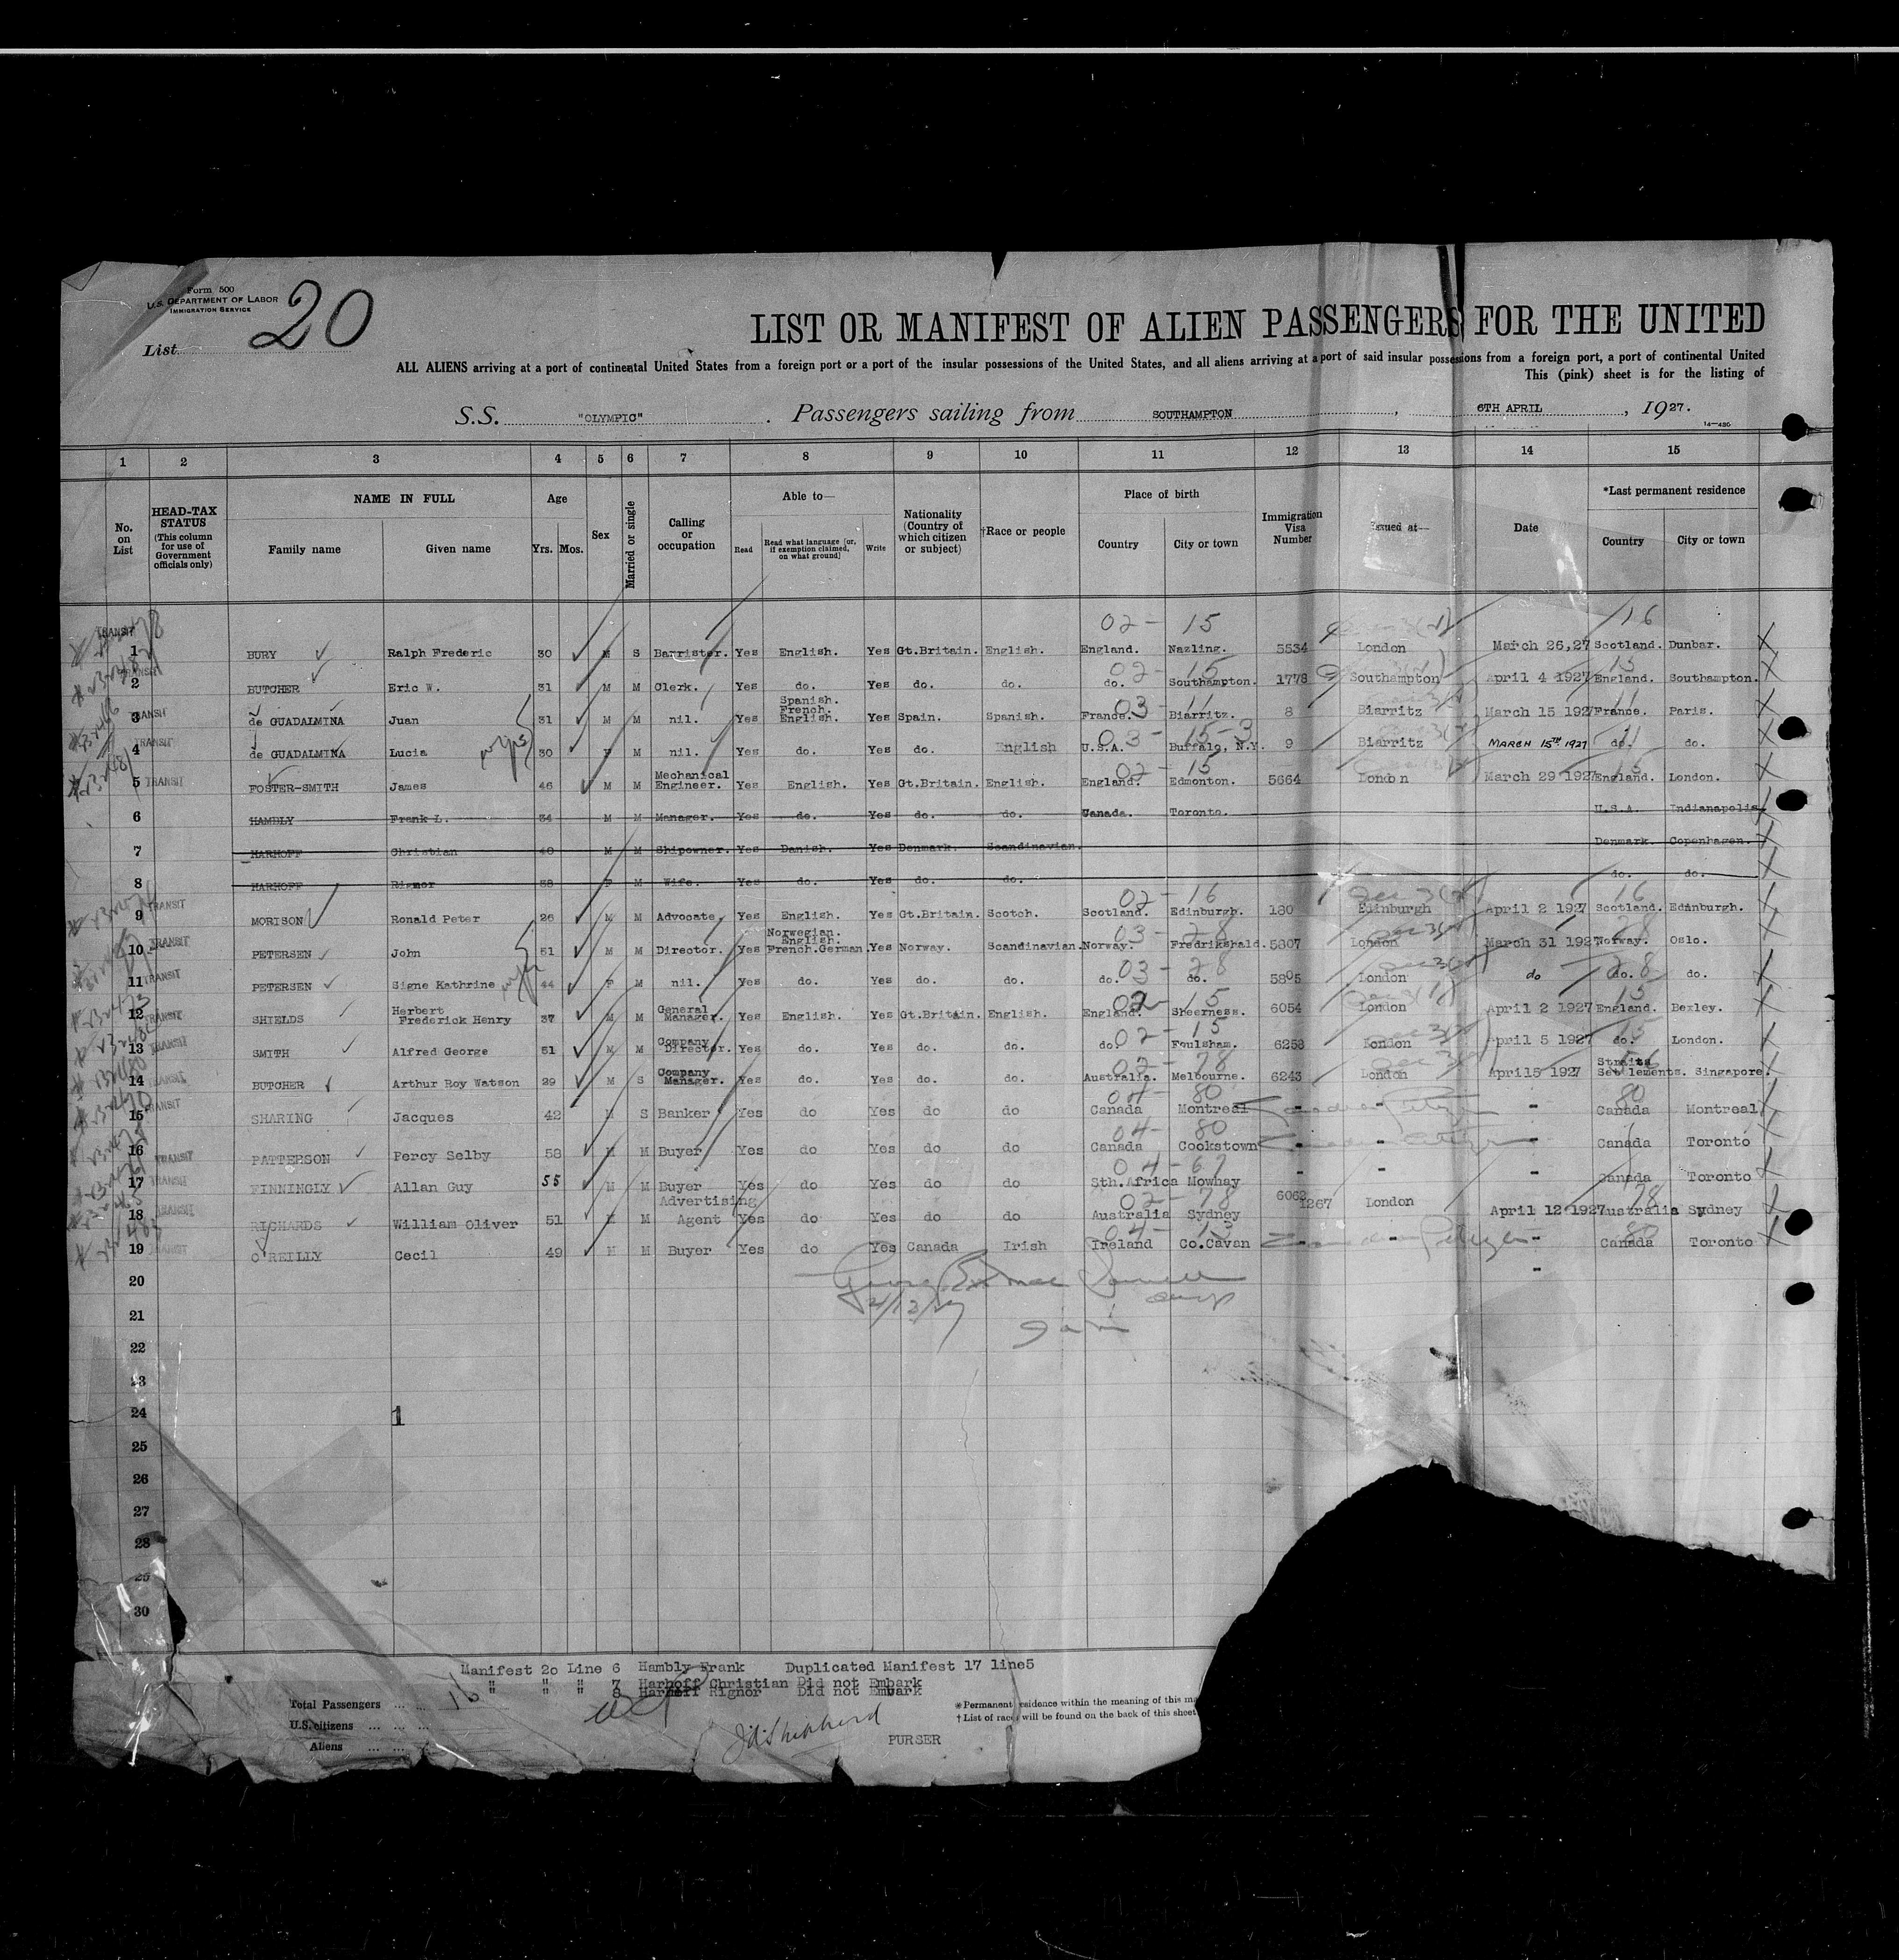 Form 500
U.S. DEPARTMENT OF LABOR
IMMIGRATION SERVICE
List 20
LIST OR MANIFEST OF ALIEN PASSENGERS FOR THE UNITED
ALL ALIENS arriving at a port of continental United States from a foreign port or a port of the insular possessions of the United States, and all aliens arriving at a port of said insular possessions from a foreign port, a port of continental United
This (pink) sheet is for the listing of
S.S. "OLYMPIC". Passengers sailing from SOUTHAMPTON, 6TH APRIL, 1927.
14—430
1 2 3 4 5 6 7 8 9 10 11 12 13 14 15
No. on List
HEAD-TAX STATUS (This column for use of Government officials only)
NAME IN FULL
Family name Given name
Age
Yrs. Mos.
Sex
Married or single
Calling or occupation
Able to—
Read Read what language [or, if exemption claimed, on what ground] Write
Nationality (Country of which citizen or subject)
†Race or people
Place of birth
Country City or town
Immigration Visa Number
Issued at—
Date
*Last permanent residence
Country City or town
02 - 15 16
1 TRANSIT BURY Ralph Frederic 30 M S Barrister. Yes English. Yes Gt.Britain. English. England. Nazling. 5534 London March 26,27 Scotland. Dunbar.
02 - 15 15
2 TRANSIT BUTCHER Eric W. 31 M M Clerk. Yes do. Yes do. do. do. Southampton. 1778 Southampton April 4 1927 England. Southampton.
03 - 11 11
3 TRANSIT de GUADALMINA Juan 31 M M nil. Yes Spanish. French. English. Yes Spain. Spanish. France. Biarritz. 8 Biarritz March 15 1927 France. Paris.
03 - 15-3
4 TRANSIT de GUADALMINA Lucia 30 F M nil. Yes do. Yes do. English U.S.A. Buffalo, N.Y. 9 Biarritz MARCH 15TH 1927 do. do.
02 - 15 15
5 TRANSIT FOSTER-SMITH James 46 M M Mechanical Engineer. Yes English. Yes Gt.Britain. English. England. Edmonton. 5664 London March 29 1927 England. London.
6 HAMBLY Frank L. 34 M M Manager. Yes do. Yes do. do. Canada. Toronto. U.S.A. Indianapolis
7 HARHOFF Christian 40 M M Shipowner. Yes Danish. Yes Denmark. Scandinavian. Denmark. Copenhagen.
8 HARHOFF Rignor 38 F M Wife. Yes do. Yes do. do. do. do.
02 - 16 16
9 TRANSIT MORISON Ronald Peter 26 M M Advocate. Yes English. Yes Gt.Britain. Scotch. Scotland. Edinburgh. 180 Edinburgh April 2 1927 Scotland. Edinburgh.
03 - 28 28
10 TRANSIT PETERSEN John 51 M M Director. Yes Norwegian. English. French.German. Yes Norway. Scandinavian. Norway. Fredrikshald. 5807 London March 31 1927 Norway. Oslo.
03 - 28 28
11 TRANSIT PETERSEN Signe Kathrine 44 F M nil. Yes do. Yes do. do. do. do. 5805 London do do. do.
02 - 15 15
12 TRANSIT SHIELDS Herbert Frederick Henry 37 M M General Manager. Yes English. Yes Gt.Britain. English. England. Sheerness. 6054 London April 2 1927 England. Bexley.
02 - 15 15
13 TRANSIT SMITH Alfred George 51 M M Company Director. Yes do. Yes do. do. do. Foulsham. 6253 London April 5 1927 do. London.
02 - 78 56
14 TRANSIT BUTCHER Arthur Roy Watson 29 M S Company Manager. Yes do. Yes do. do. Australia. Melbourne. 6243 London April5 1927 Straits Settlements. Singapore.
04 - 80 80
15 TRANSIT SHARING Jacques 42 M S Banker Yes do Yes do do Canada Montreal - - - Canada Montreal
04 - 80
16 TRANSIT PATTERSON Percy Selby 58 M M Buyer Yes do Yes do do Canada Cookstown - - Canada Toronto
04 - 67
17 TRANSIT FINNINGLY Allan Guy 55 M M Buyer Yes do Yes do do Sth.Africa Mowhay - - - Canada Toronto
02 - 78 78
18 TRANSIT RICHARDS William Oliver 51 M M Advertising Agent Yes do Yes do do Australia Sydney 6062 1267 London April 12 1927 Australia Sydney
04 - 13 80
19 TRANSIT O'REILLY Cecil 49 M M Buyer Yes do Yes Canada Irish Ireland Co.Cavan - Canada Toronto
20
21
22
23
24 1
25
26
27
28
29
30
Manifest 20 Line 6 Hambly Frank Duplicated Manifest 17 line5
" " " 7 Harhoff Christian Did not Embark
" " " 8 Harhoff Rignor Did not Embark
Total Passengers ... ... 16
U.S. citizens ... ... ...
Aliens ... ... ...
PURSER
*Permanent residence within the meaning of this ma
†List of races will be found on the back of this sheet